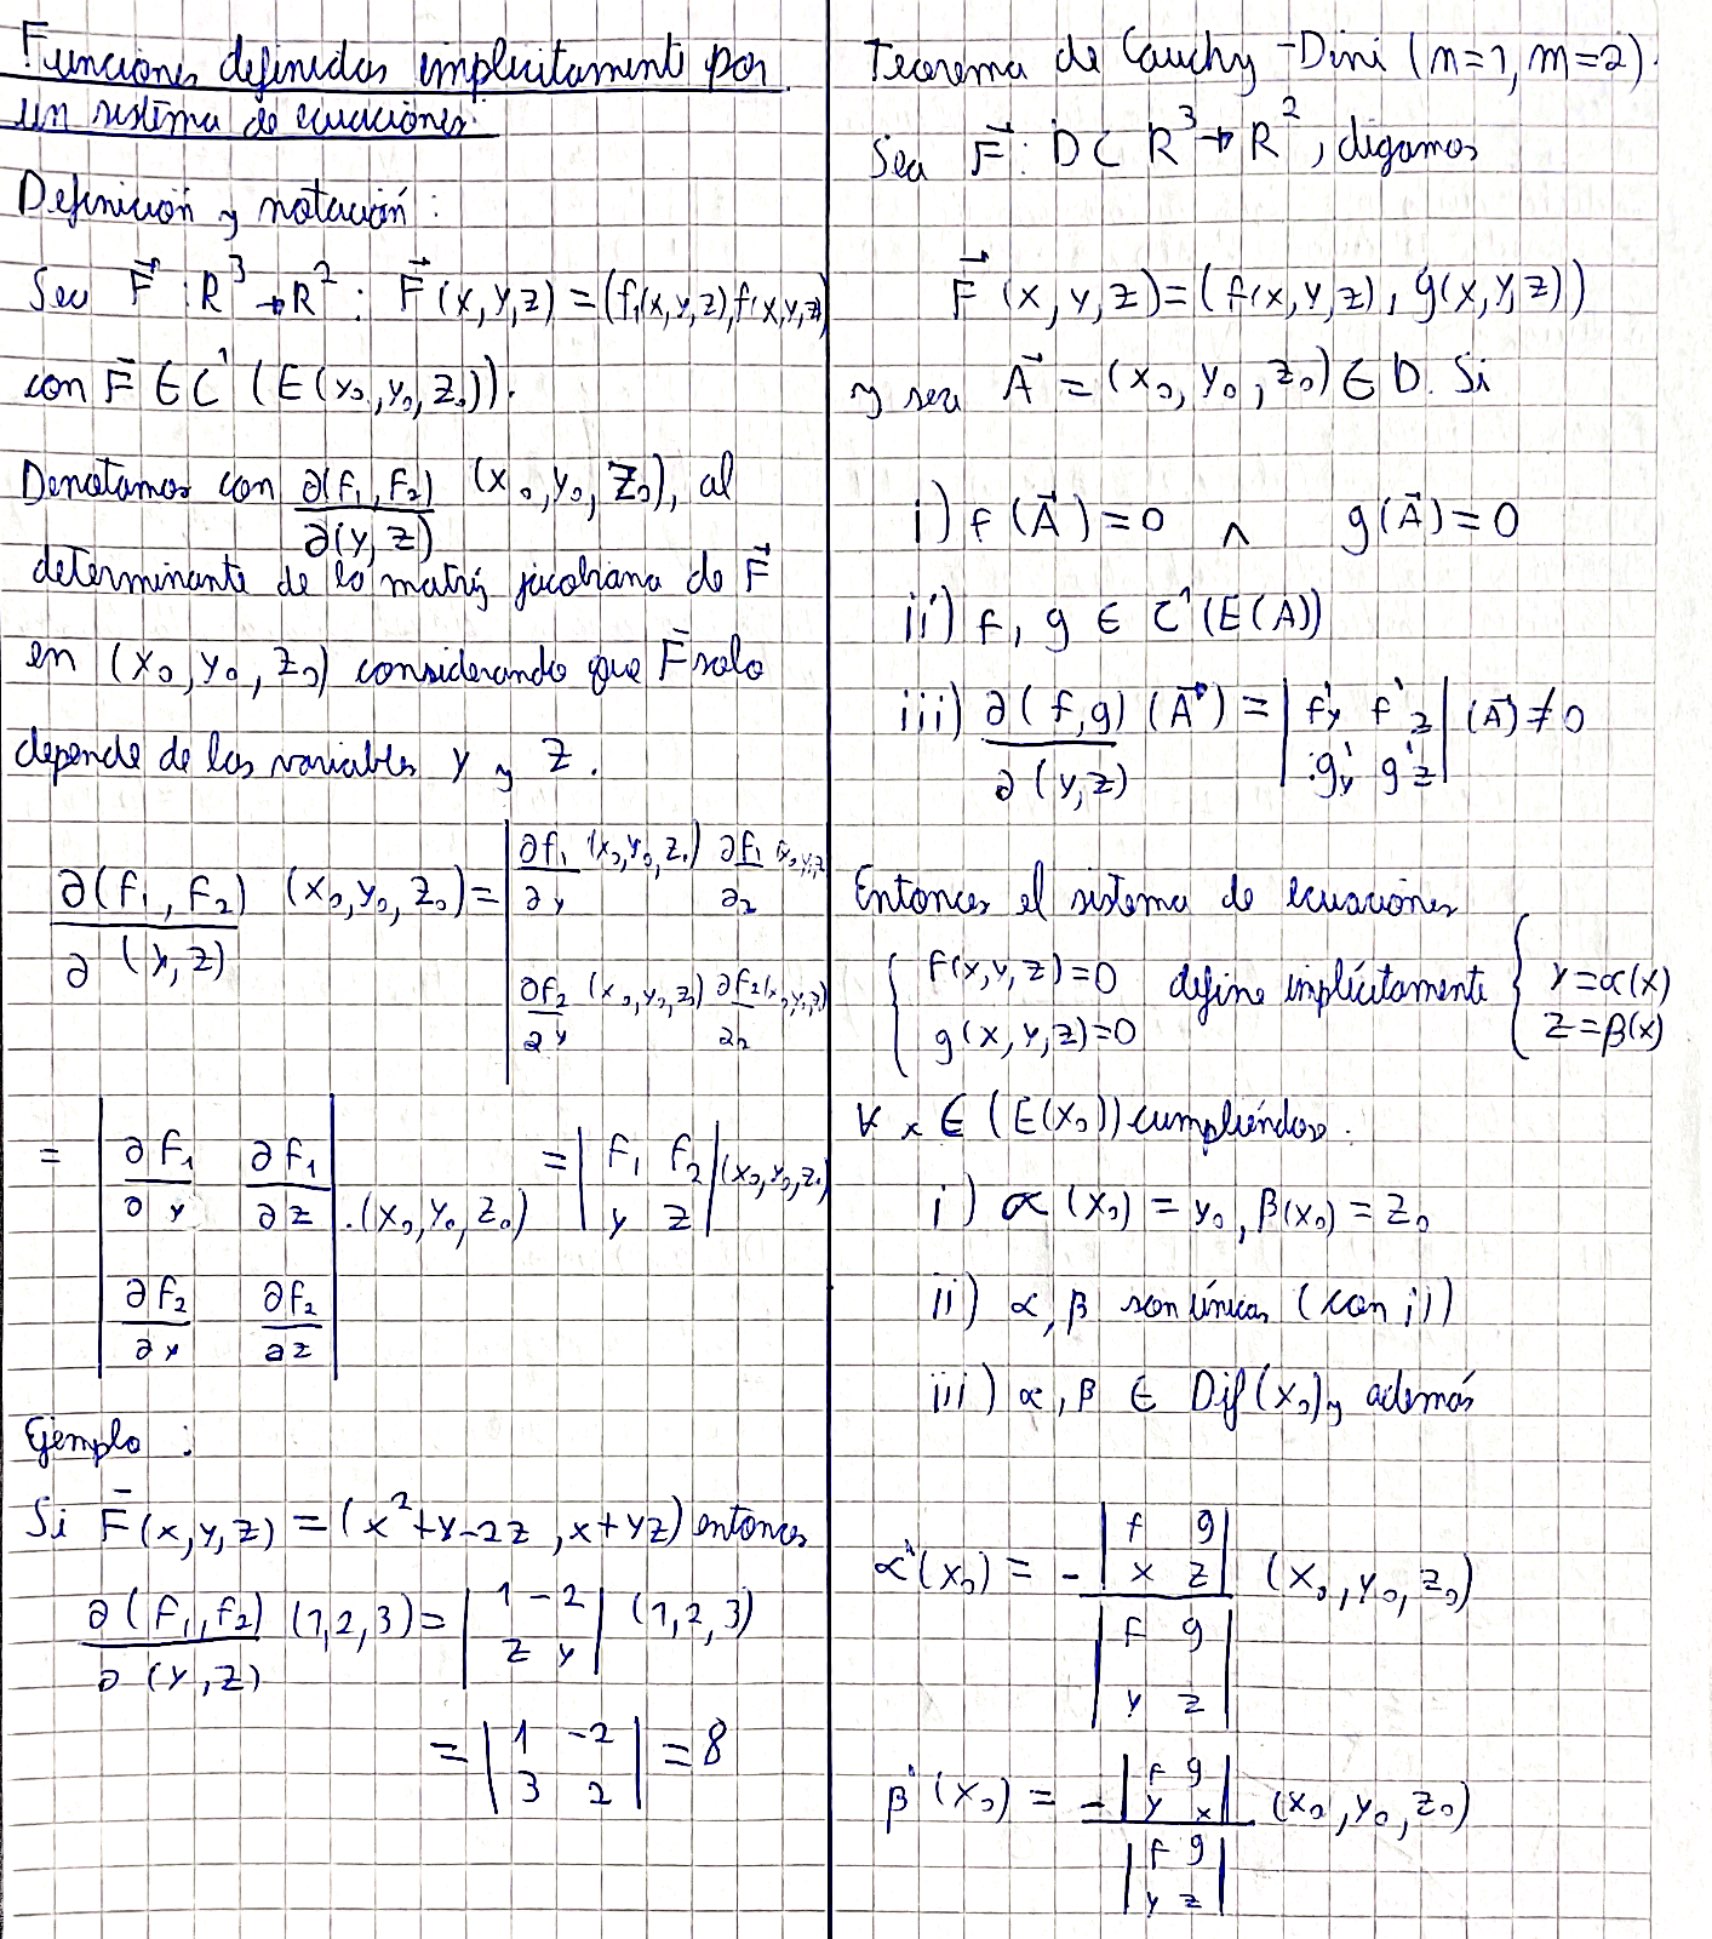 Funciones definidas implicitamente por
un sistema de ecuaciones.
Definición y notación:
Sea F⃗: R³→R²: F⃗(x,y,z)=(f₁(x,y,z),f(x,y,z)
con F̄ ∈ C¹ (E(x₀,y₀,z₀)).
Denotamos con ∂(F₁,F₂)/∂(y,z) (x₀,y₀,z₀), al
determinante de la matriz jacobiana de F⃗
en (x₀,y₀,z₀) considerando que F̄ solo
depende de las variables y y z.
∂(F₁,F₂)/∂(y,z) (x₀,y₀,z₀)= | ∂f₁/∂y (x₀,y₀,z₀) ∂f₁/∂z (x₀,y₀,z₀
∂f₂/∂y (x₀,y₀,z₀) ∂f₂/∂z (x₀,y₀,z₀)
= | ∂F₁/∂y ∂F₁/∂z | .(x₀,y₀,z₀) = | F₁ F₂ | (x₀,y₀,z₀)
| y z |
| ∂F₂/∂y ∂F₂/∂z |
Ejemplo:
Si F̄(x,y,z)=(x²+y-2z, x+yz) entonces
∂(F₁,F₂)/∂(y,z) (1,2,3)= | 1 -2 | (1,2,3)
| z y |
= | 1 -2 | = 8
| 3 2 |
Teorema de Cauchy-Dini (n=1, m=2).
Sea F⃗: D⊂R³→R², digamos
F⃗(x,y,z)=(f(x,y,z), g(x,y,z))
y sea A⃗=(x₀,y₀,z₀)∈D. Si
i) f(A⃗)=0 ∧ g(A⃗)=0
ii) f, g ∈ C¹(E(A))
iii) ∂(f,g)/∂(y,z) (A⃗)= | f'y f'z | (A⃗)≠0
| g'y g'z |
Entonces el sistema de ecuaciones
{ f(x,y,z)=0 define implícitamente { y=α(x)
g(x,y,z)=0 z=β(x)
∀ x ∈ (E(x₀)) cumpliéndose:
i) α(x₀)=y₀, β(x₀)=z₀
ii) α, β son únicas (con i))
iii) α, β ∈ Dif(x₀) y además
α'(x₀) = - | f g | (x₀,y₀,z₀)
| x z |
| f g |
| y z |
β'(x₀) = - | f g | (x₀,y₀,z₀)
| y x |
| f g |
| y z |